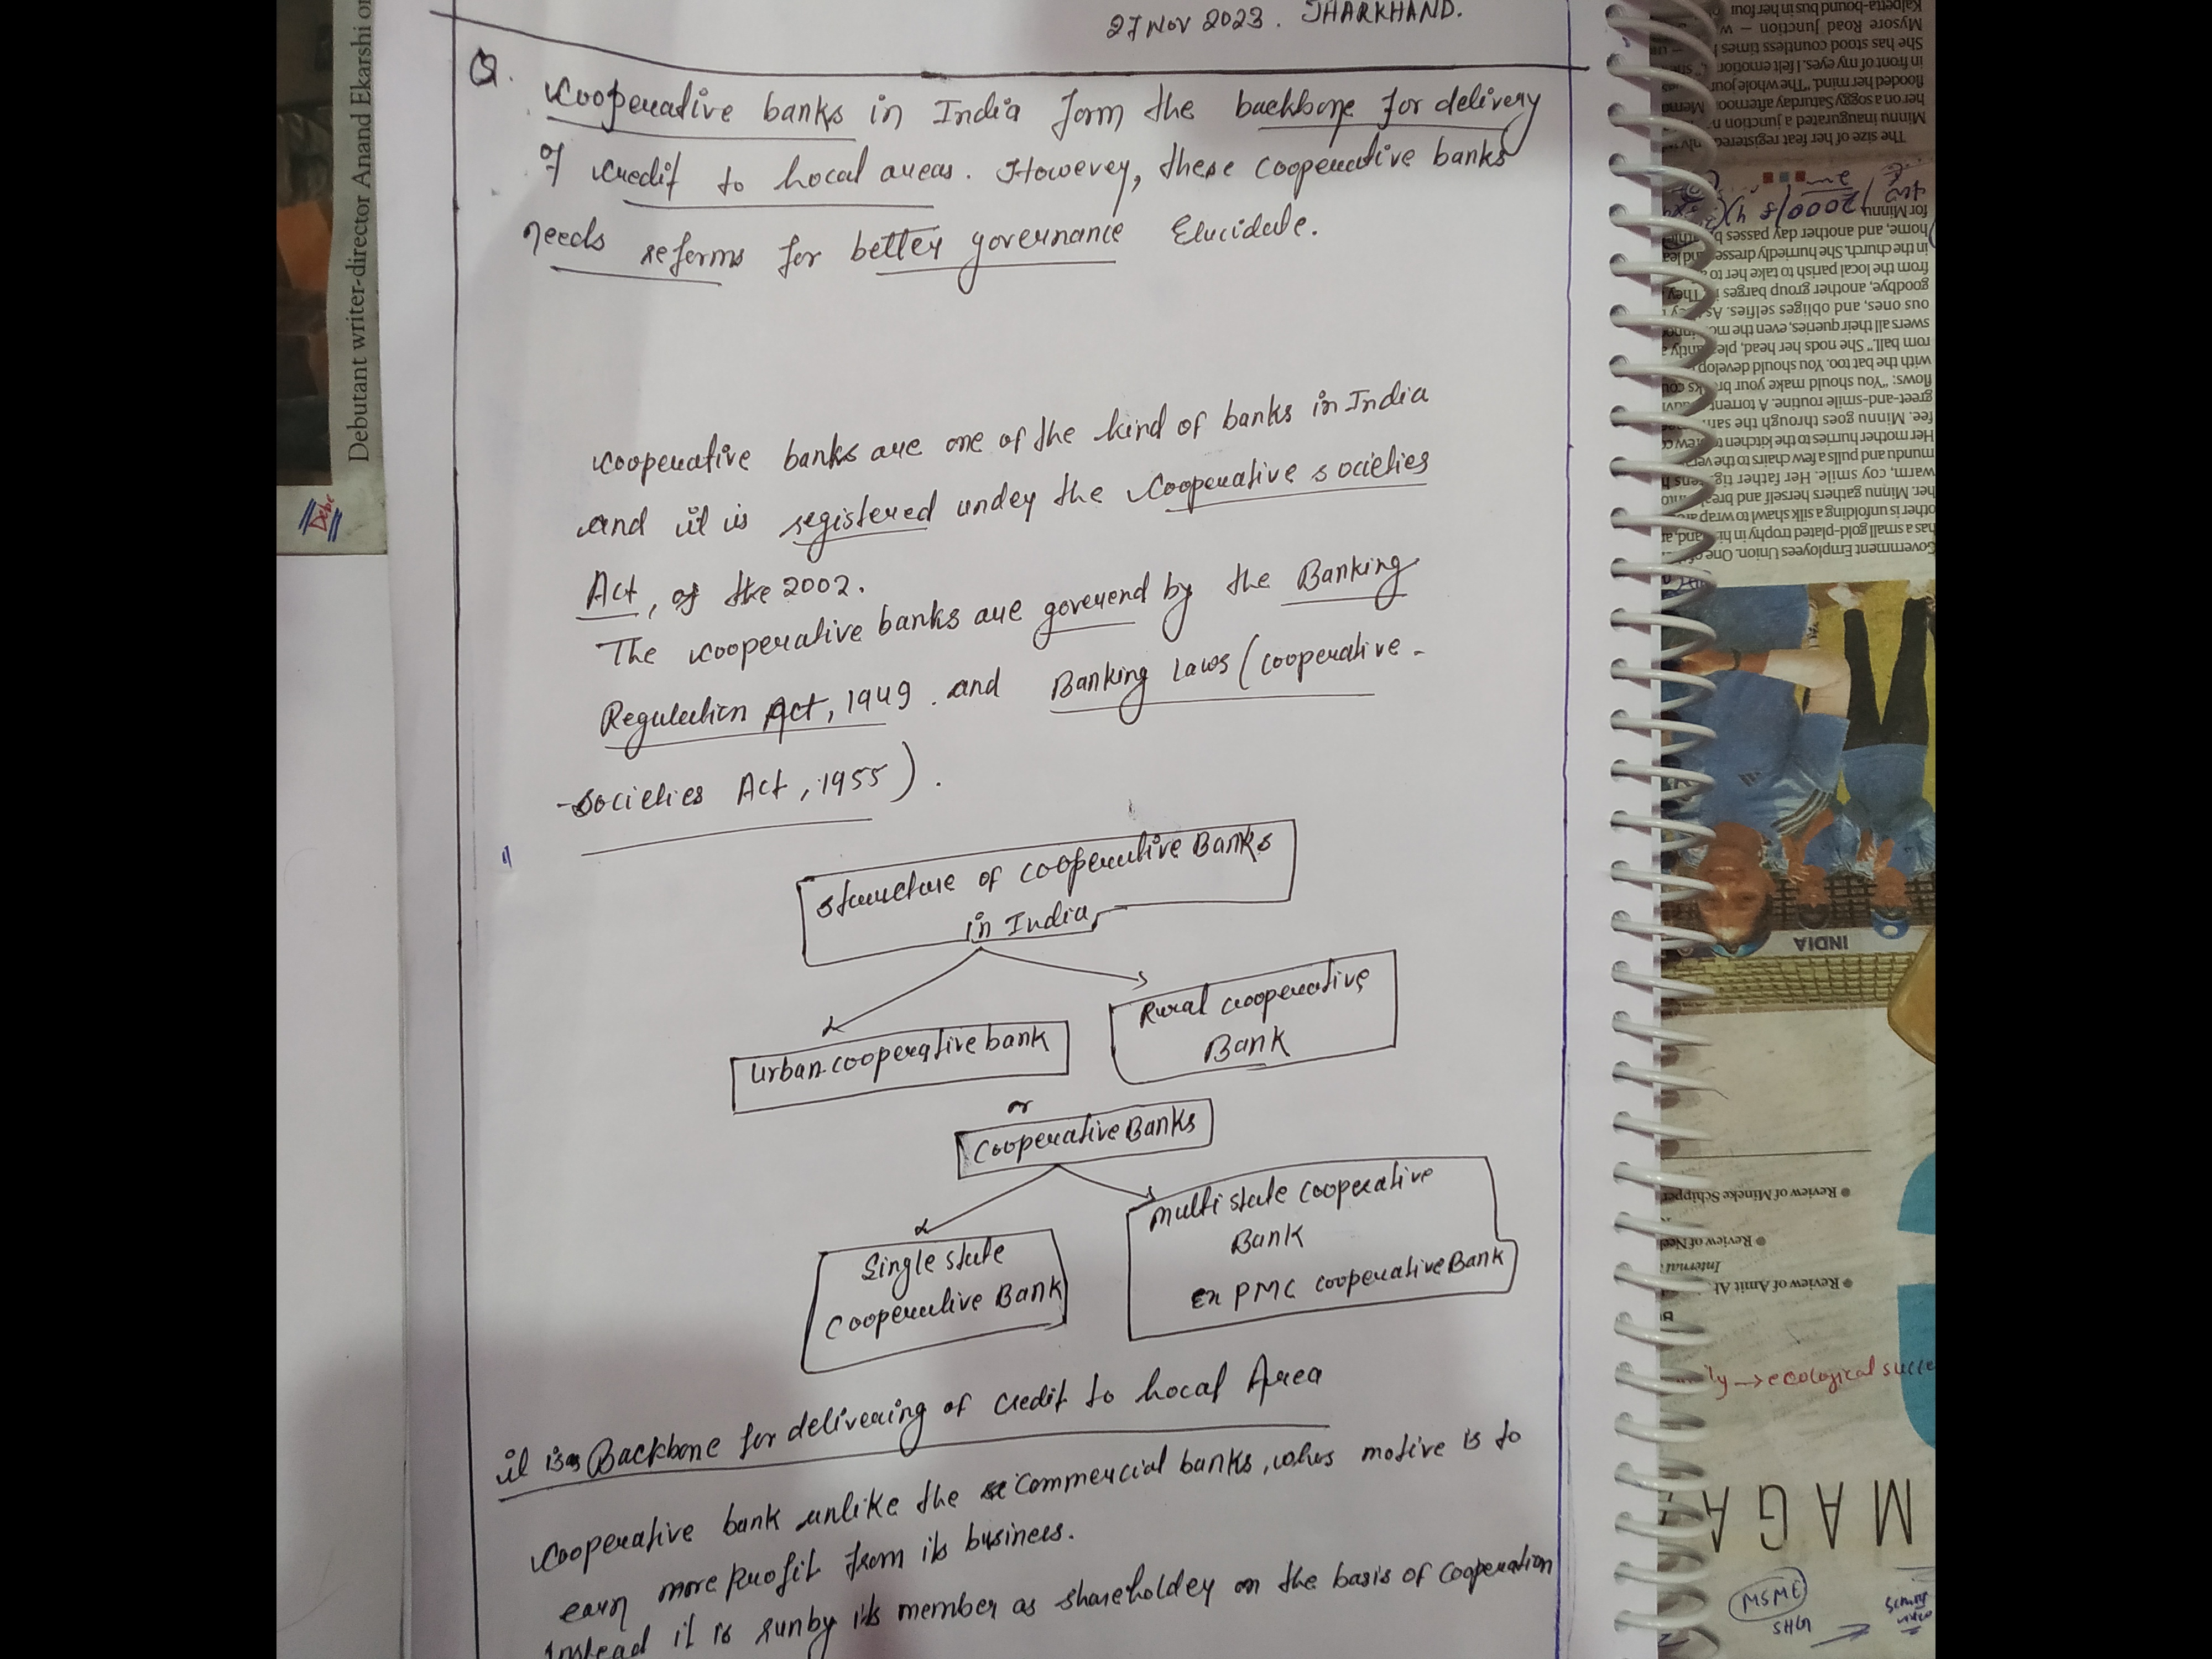 27 NOV 2023. JHARKHAND.
Q. Cooperative banks in India form the backbone for delivery
of credit to local areas. However, these cooperative banks
needs reforms for better governance Elucidate.
Cooperative banks are one of the kind of banks in India
and it is registered under the Cooperative societies
Act, of the 2002.
The cooperative banks are goverend by the Banking
Regulation Act, 1949. and Banking Laws (cooperative-
-societies Act, 1955).
Structure of cooperative Banks
in India
Urban cooperative bank
Rural cooperative
Bank
or
Cooperative Banks
Single state
Cooperative Bank
Multi state cooperative
Bank
Ex PMC cooperative Bank
it is Backbone for delivering of credit to Local Area
Cooperative bank unlike the commercial banks, whos motive is to
earn more profit from its business.
Instead it is run by its member as shareholder on the basis of cooperation
Debutant writer-director Anand Ekarshi
Debe
Kalpetta-bound bus in her four
Mysore Road junction –
She has stood countless times
in front of my eyes. I felt emotion
flooded her mind. "The whole jour
her on a soggy Saturday afternoon
Minnu inaugurated a junction
The size of her feat registered
for Minnu
home, and another day passes
in the church. She hurriedly dresses
from the local parish to take her to
goodbye, another group barges
ous ones, and obliges selfies. As
swers all their queries, even the
rom ball." She nods her head,
with the bat too. You should develop
flows: "You should make your
greet-and-smile routine. A torrent
fee. Minnu goes through the
Her mother hurries to the kitchen to
mundu and pulls a few chairs to the
warm, coy smile. Her father
her. Minnu gathers herself and
other is unfolding a silk shawl to wrap
has a small gold-plated trophy in
Government Employees Union. One of
INDIA
Review of Mineke Schipper
Review of
Internat
Review of Amit
→ ecological succe
MAGA
MSME
SHG